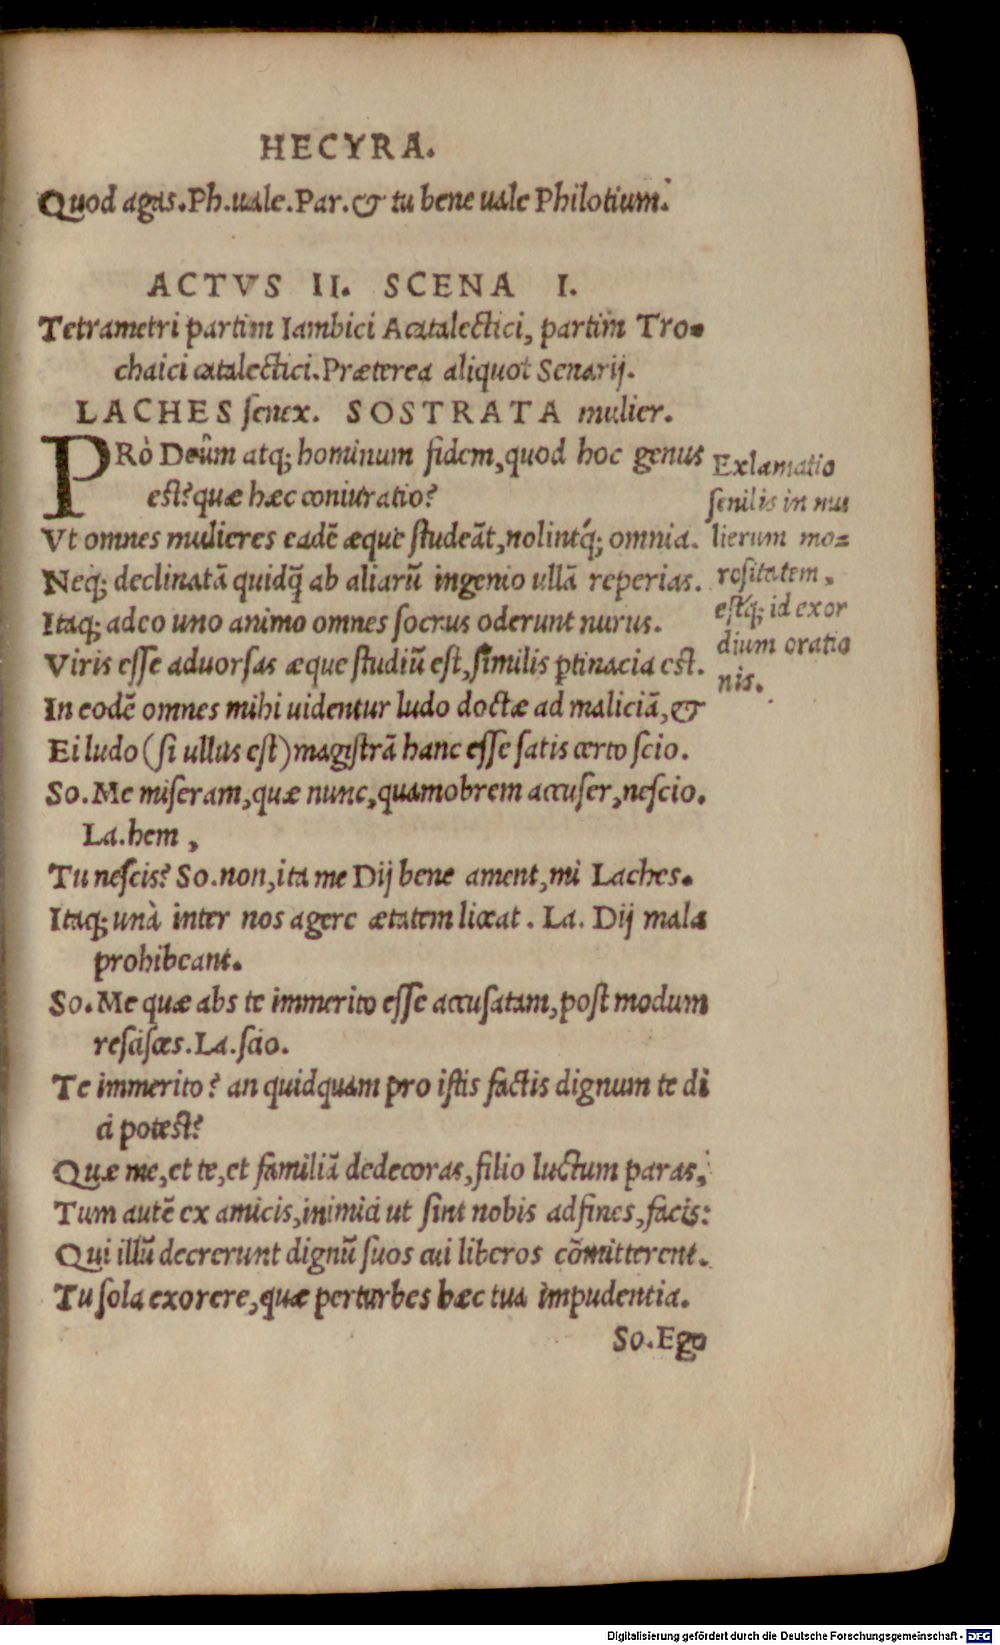 HECYRA.
Quod agas. Ph. uale. Par. & tu bene uale Philotium.
ACTVS II. SCENA I.
Tetrametri partim Iambici Acatalectici, partim Tro-
chaici catalectici. Præterea aliquot Senarij.
LACHES senex. SOSTRATA mulier.
PRò Deûm atq; hominum fidem, quod hoc genus
est? quæ hæc coniuratio?
Vt omnes mulieres eadē æque studeāt, nolintq́; omnia.
Neq; declinatā quidq̄ ab aliarū ingenio ullā reperias.
Itaq; adeo uno animo omnes socrus oderunt nurus.
Viris esse aduorsas æque studiū est, similis ꝑtinacia est.
In eodē omnes mihi uidentur ludo doctæ ad maliciā, &
Ei ludo (si ullus est) magistrā hanc esse satis certo scio.
So. Me miseram, quæ nunc, quamobrem accuser, nescio.
La. hem,
Tu nescis? So. non, ita me Dij bene ament, mi Laches.
Itaq; unà inter nos agere ætatem liceat. La. Dij mala
prohibeant.
So. Me quæ abs te immerito esse accusatam, post modum
rescisces. La. scio.
Te immerito? an quidquam pro istis factis dignum te di
ci potest?
Quæ me, et te, et familiā dedecoras, filio luctum paras,
Tum autē ex amicis, inimici ut sint nobis adfines, facis:
Qui illū decrerunt dignū suos cui liberos cōmitterent.
Tu sola exorere, quæ perturbes hæc tua impudentia.
So. Ego
Exlamatio
senilis in mu
lierum mo-
rositatem,
estq́; id exor
dium oratio
nis.
Digitalisierung gefördert durch die Deutsche Forschungsgemeinschaft - DFG